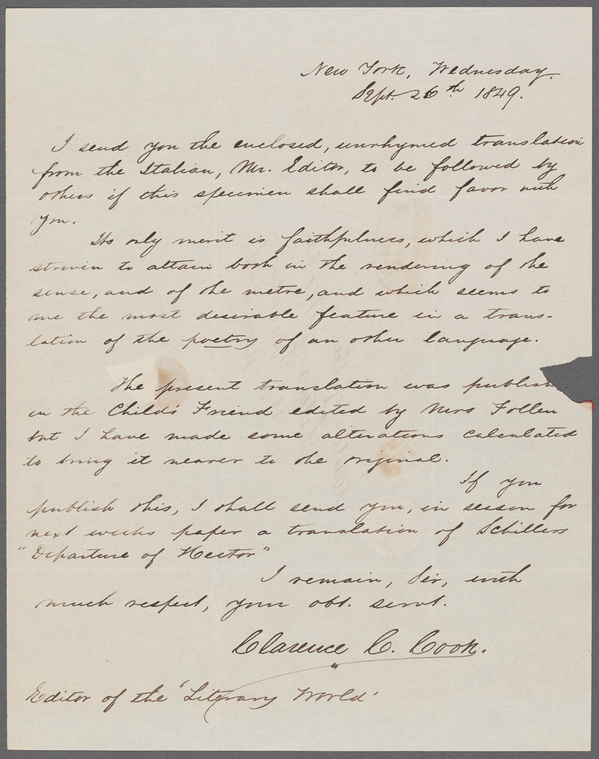 New York, Wednesday.
Sept. 26th 1849.
I send you the enclosed, unrhymed translation
from the Italian, Mr. Editor, to be followed by
others if this specimen shall find favor with
you.
Its only merit is faithfulness, which I have
striven to attain both in the rendering of the
sense, and of the metre, and which seems to
me the most desirable feature in a trans-
lation of the poetry of an other language.
The present translation was publish
in the Child's Friend edited by Mrs Follen
but I have made some alterations calculated
to bring it nearer to the original.
If you
publish this, I shall send you, in season for
next weeks paper a translation of Schillers
"Departure of Hector"
I remain, Sir, with
much respect, your obt. servt.
Clarence C. Cook.
Editor of the 'Literary World'